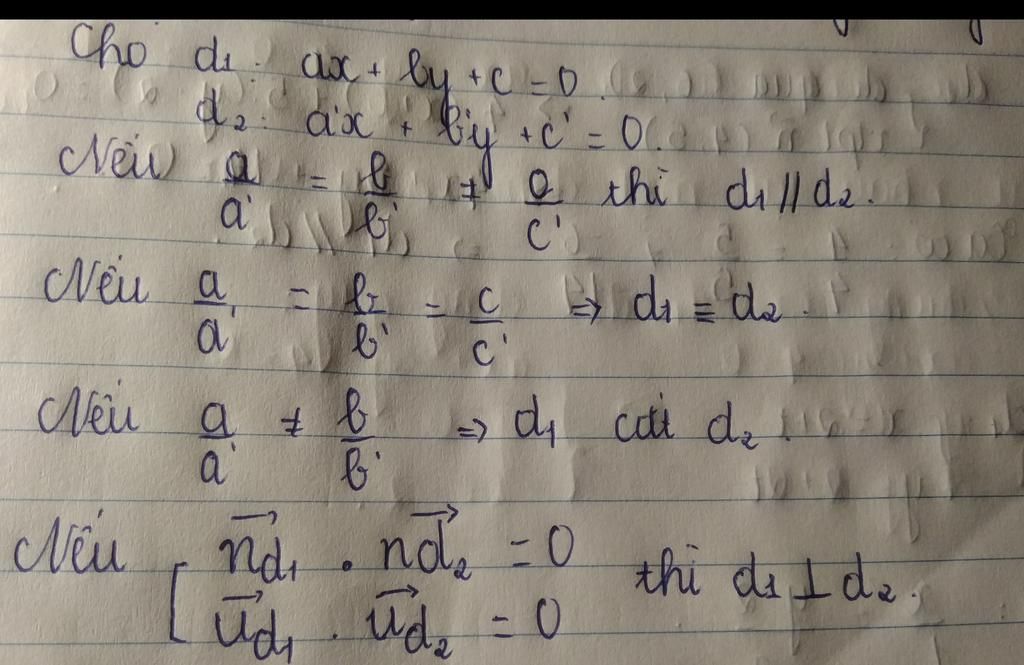 Cho d₁: ax + by + c = 0.
d₂: a'x + b'y + c' = 0.
Nếu a/a' = b/b' ≠ c/c' thì d₁ // d₂.
Nếu a/a' = b/b' = c/c' => d₁ ≡ d₂.
Nếu a/a' ≠ b/b' => d₁ cắt d₂.
Nếu [ n⃗d₁ . n⃗d₂ = 0
u⃗d₁ . u⃗d₂ = 0 thì d₁ ⊥ d₂.